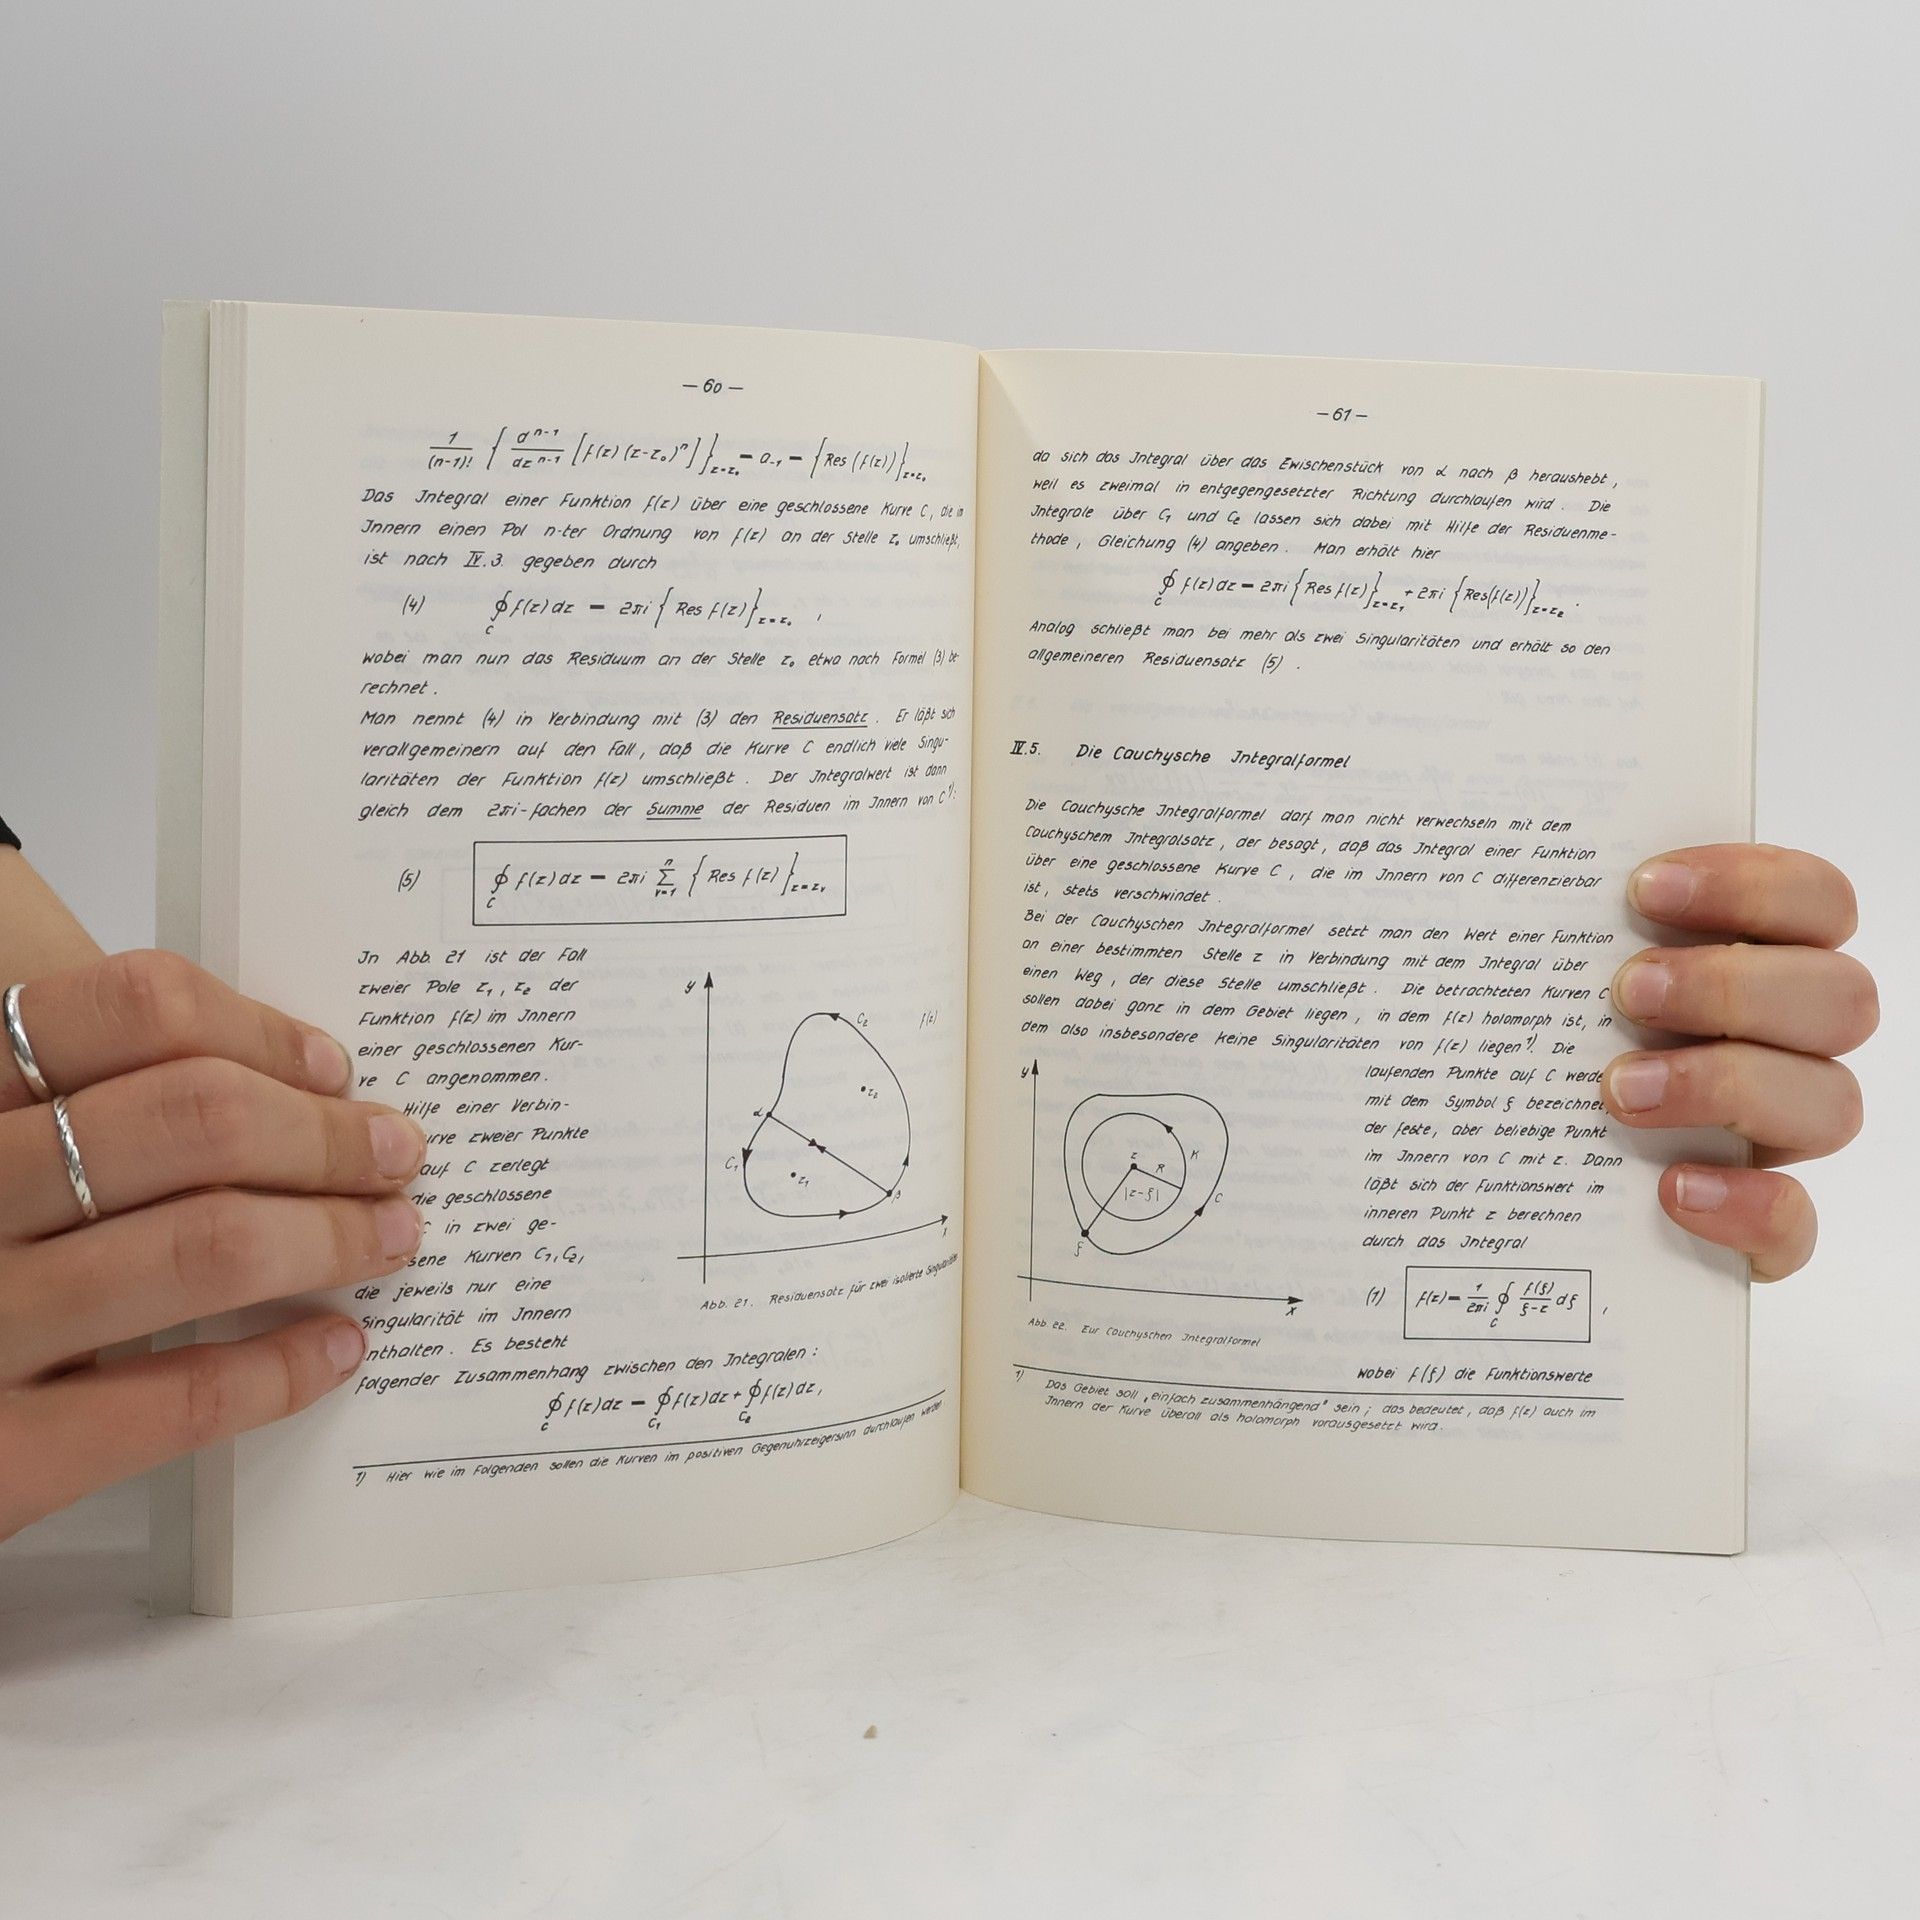 — 60 —
1/(n-1)! { d^{n-1}/dz^{n-1} [f(z) (z-z₀)ⁿ] }_{z=z₀} = a₋₁ = { Res (f(z)) }_{z=z₀}
Das Integral einer Funktion f(z) über eine geschlossene Kurve C, die im
Innern einen Pol n-ter Ordnung von f(z) an der Stelle z₀ umschließt,
ist nach IV.3. gegeben durch
(4) ∮_C f(z) dz = 2πi { Res f(z) }_{z=z₀} ,
wobei man nun das Residuum an der Stelle z₀ etwa nach Formel (3) be-
rechnet .
Man nennt (4) in Verbindung mit (3) den Residuensatz . Er läßt sich
verallgemeinern auf den Fall , daß die Kurve C endlich viele Singu-
laritäten der Funktion f(z) umschließt . Der Integralwert ist dann
gleich dem 2πi-fachen der Summe der Residuen im Innern von C ¹⁾:
(5) ∮_C f(z) dz = 2πi Σ_{ν=1}^{n} { Res f(z) }_{z=z_ν}
In Abb. 21 ist der Fall
zweier Pole z₁ , z₂ der
Funktion f(z) im Innern
einer geschlossenen Kur-
ve C angenommen .
Hilfe einer Verbin-
urve zweier Punkte
auf C zerlegt
die geschlossene
C in zwei ge-
sene Kurven C₁, C₂,
die jeweils nur eine
Singularität im Innern
nthalten . Es besteht
y
C₂
f(z)
z₂
α
C₁
z₁
β
x
Abb. 21. Residuensatz für zwei isolierte Singularitäten
folgender Zusammenhang zwischen den Integralen :
∮_C f(z) dz = ∮_{C₁} f(z) dz + ∮_{C₂} f(z) dz ,
1) Hier wie im Folgenden sollen die Kurven im positiven Gegenuhrzeigersinn durchlaufen werden
— 61 —
da sich das Integral über das Zwischenstück von α nach β heraushebt ,
weil es zweimal in entgegengesetzter Richtung durchlaufen wird . Die
Integrale über C₁ und C₂ lassen sich dabei mit Hilfe der Residuenme-
thode , Gleichung (4) angeben . Man erhält hier
∮_C f(z) dz = 2πi { Res f(z) }_{z=z₁} + 2πi { Res(f(z)) }_{z=z₂} .
Analog schließt man bei mehr als zwei Singularitäten und erhält so den
allgemeineren Residuensatz (5) .
IV.5. Die Cauchysche Integralformel
Die Cauchysche Integralformel darf man nicht verwechseln mit dem
Cauchyschem Integralsatz , der besagt , daß das Integral einer Funktion
über eine geschlossene Kurve C , die im Innern von C differenzierbar
ist , stets verschwindet .
Bei der Cauchyschen Integralformel setzt man den Wert einer Funktion
an einer bestimmten Stelle z in Verbindung mit dem Integral über
einen Weg , der diese Stelle umschließt . Die betrachteten Kurven C
sollen dabei ganz in dem Gebiet liegen , in dem f(z) holomorph ist , in
dem also insbesondere keine Singularitäten von f(z) liegen ¹⁾. Die
laufenden Punkte auf C werde
mit dem Symbol ξ bezeichnet,
der feste, aber beliebige Punkt
im Innern von C mit z . Dann
läßt sich der Funktionswert im
inneren Punkt z berechnen
durch das Integral
(1) f(z) = 1/(2πi) ∮_C f(ξ)/(ξ-z) dξ ,
wobei f(ξ) die Funktionswerte
y
z
R
K
|z-ξ|
C
ξ
x
Abb. 22. Zur Cauchyschen Integralformel
1) Das Gebiet soll „einfach zusammenhängend" sein ; das bedeutet , daß f(z) auch im
Innern der Kurve überall als holomorph vorausgesetzt wird .